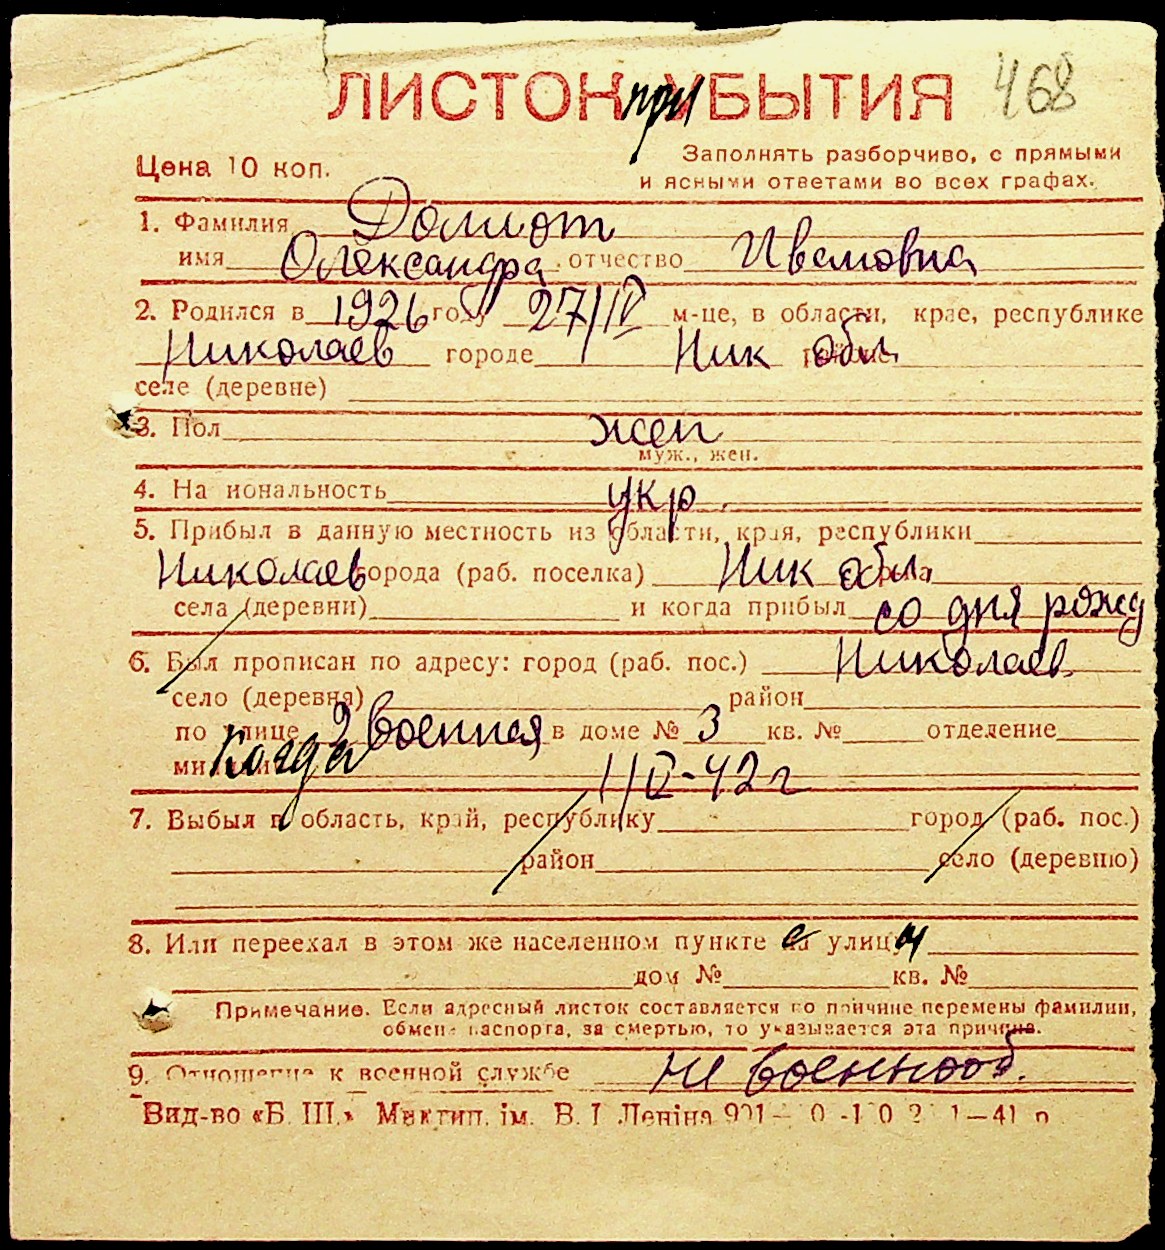 ЛИСТОК при УБЫТИЯ 468
Цена 10 коп.
Заполнять разборчиво, с прямыми
и ясными ответами во всех графах.
1. Фамилия Долиот
имя Олександра отчество Ивановна
2. Родился в 1926 году 27/IV м-це, в области, крае, республике
Николаев городе Ник обл
селе (деревне)
3. Пол жен
муж., жен.
4. Национальность укр.
5. Прибыл в данную местность из области, края, республики
Николаев города (раб. поселка) Ник обл.
села (деревни) и когда прибыл со дня рожд
6. Был прописан по адресу: город (раб. пос.) Николаев
село (деревня) район
по улице 2 военная в доме № 3 кв. № отделение
милиции Когда 1/V-42 г
7. Выбыл в область, край, республику город (раб. пос.)
район село (деревню)
8. Или переехал в этом же населенном пункте с улицы
дом № кв. №
Примечание. Если адресный листок составляется по причине перемены фамилии,
обмена паспорта, за смертью, то указывается эта причина.
9. Отношение к военной службе не военнооб.
Вид-во «Б. Ш.» Миктип. ім. В. І. Леніна